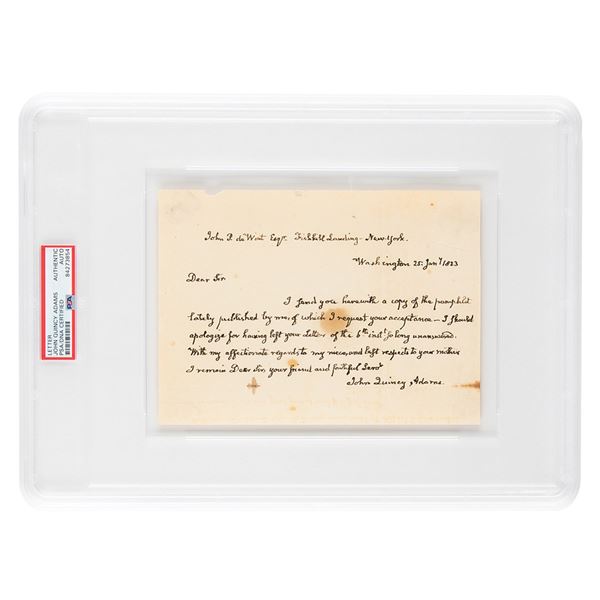 John P. de Wint Esqr. Fishkill Landing - New-York.
Washington 25. Jany 1823
Dear Sir
I send you herewith a copy of the pamphlet
lately published by me, of which I request your acceptance — I should
apologize for having left your Letter of the 6th. inst. so long unanswered.
With my affectionate regards to my niece, and best respects to your mother
I remain Dear Sir, your friend and faithful Servt
John Quincy Adams.
LETTER AUTHENTIC
JOHN QUINCY ADAMS AUTO
PSA/DNA CERTIFIED 84273854
PSA